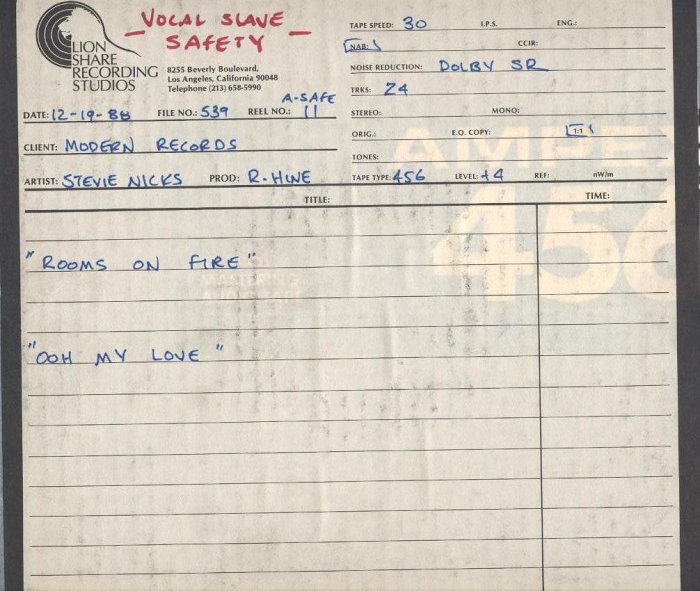 - VOCAL SLAVE -
SAFETY
LION
SHARE
RECORDING
STUDIOS
8255 Beverly Boulevard,
Los Angeles, California 90048
Telephone (213) 658-5990
TAPE SPEED: 30 I.P.S. ENG.:
NAB: CCIR:
NOISE REDUCTION: DOLBY SR
TRKS: 24
A-SAFE
DATE: 12-19-88 FILE NO.: 539 REEL NO.: 11
STEREO: MONO:
ORIG.: E.Q. COPY: 1:1
CLIENT: MODERN RECORDS
TONES:
ARTIST: STEVIE NICKS PROD: R-HINE
TAPE TYPE: 456 LEVEL: +4 REF: nW/m
TITLE: TIME:
"ROOMS ON FIRE"
"OOH MY LOVE"
AMPEX
456